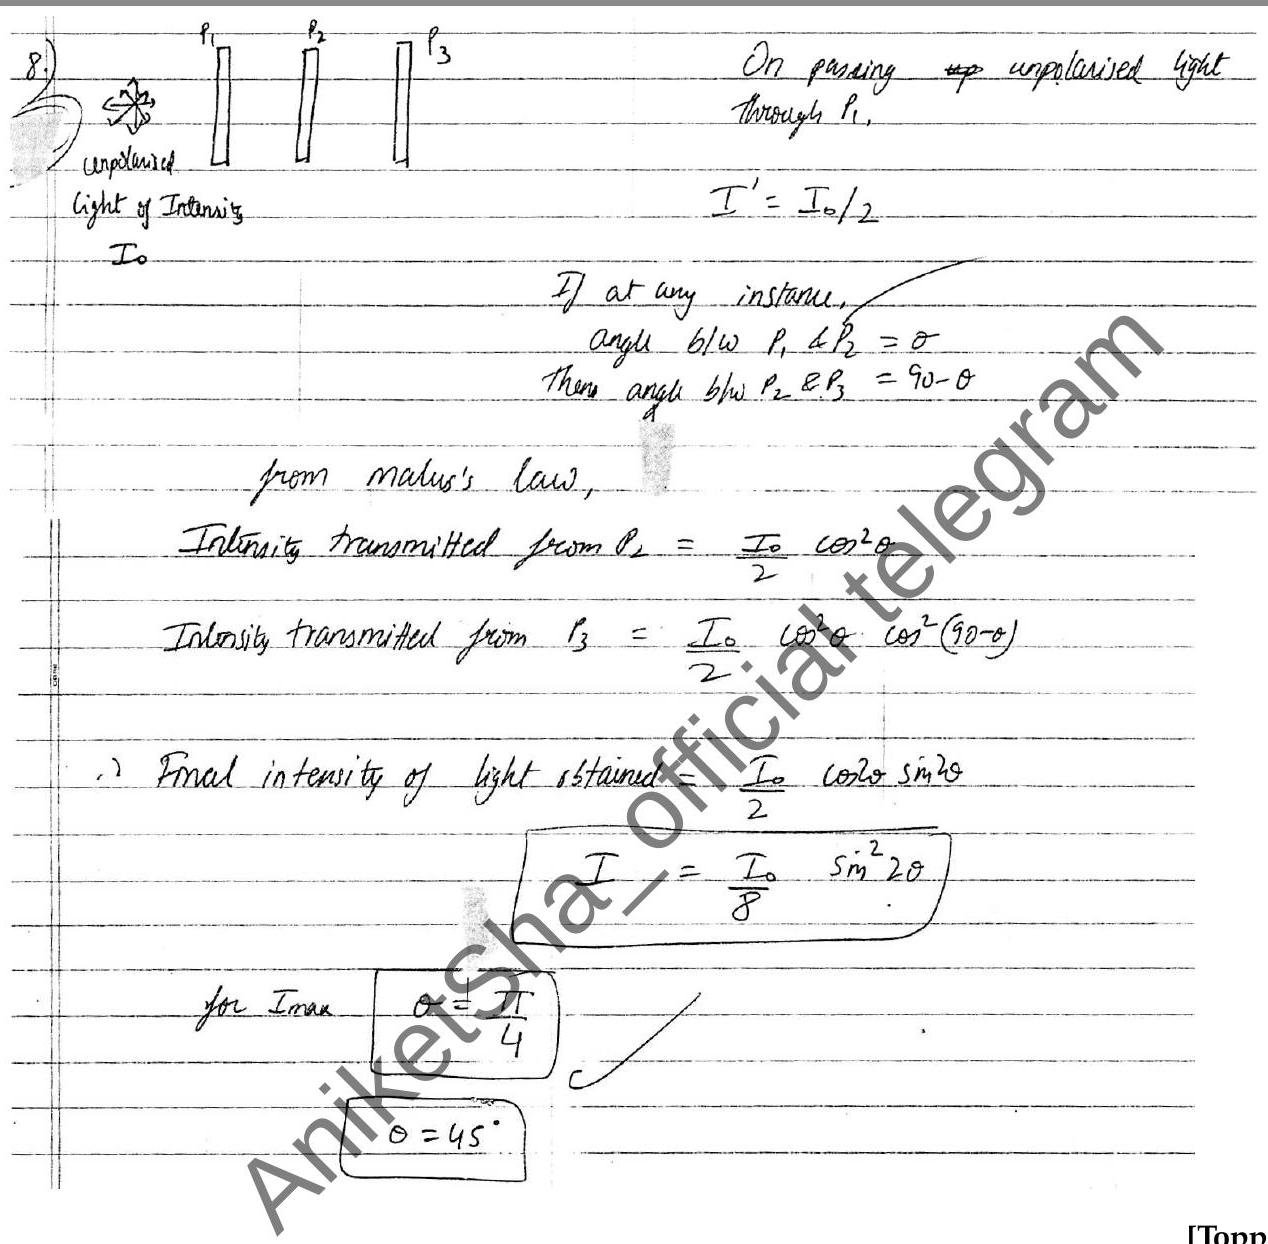 8.)
P1 P2 P3
unpolarised
light of Intensity
I₀
On passing unpolarised light
through P₁,
I' = I₀/2
If at any instance,
angle b/w P₁ & P₂ = θ
Then angle b/w P₂ & P₃ = 90-θ
from malus's law,
Intensity transmitted from P₂ = I₀/2 cos²θ
Intensity transmitted from P₃ = I₀/2 cos²θ cos²(90-θ)
∴ Final intensity of light obtained = I₀/2 cos²θ sin²θ
I = I₀/8 sin²2θ
for Imax θ = π/4
θ = 45°
AniketSha_official telegram
[Topp